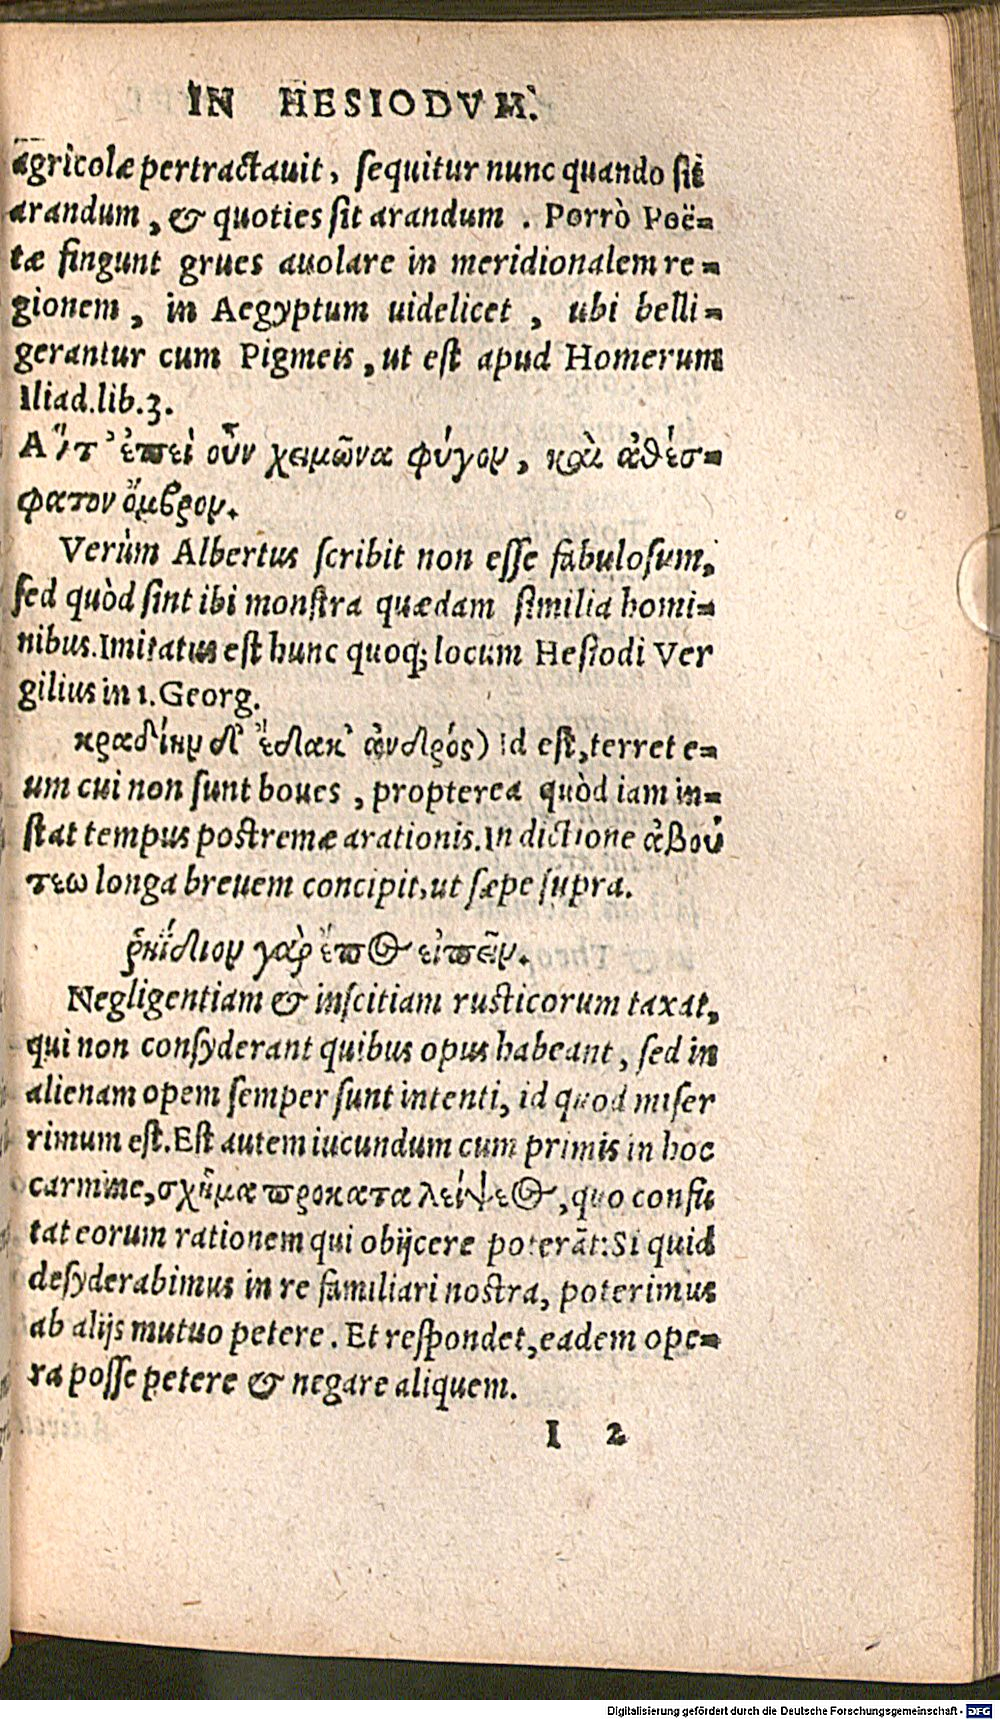 IN HESIODVM.
agricolæ pertractauit, sequitur nunc quando sit
arandum, & quoties sit arandum. Porrò Poë-
tæ fingunt grues auolare in meridionalem re-
gionem, in Aegyptum uidelicet, ubi belli-
gerantur cum Pigmeis, ut est apud Homerum
Iliad. lib. 3.
Αἵτ' ἐπεὶ οὖν χειμῶνα φύγον, καὶ ἀθέσ-
φατον ὄμβρον.
Verùm Albertus scribit non esse fabulosum,
sed quòd sint ibi monstra quædam similia homi-
nibus. Imitatus est hunc quoq; locum Hesiodi Ver
gilius in 1. Georg.
κραδίην δ' ἔδακ' ἀνδρός) id est, terret e-
um cui non sunt boues, propterea quòd iam in-
stat tempus postremæ arationis. In dictione ἀβού
τεω longa breuem concipit, ut sæpe supra.
ῥηΐδιον γὰρ ἔπος εἰπεῖν.
Negligentiam & inscitiam rusticorum taxat,
qui non consyderant quibus opus habeant, sed in
alienam opem semper sunt intenti, id quod miser
rimum est. Est autem iucundum cum primis in hoc
carmine, σχῆμα προκαταλείψεος, quo confu
tat eorum rationem qui obijcere poterāt: Si quid
desyderabimus in re familiari nostra, poterimus
ab alijs mutuo petere. Et respondet, eadem ope-
ra posse petere & negare aliquem.
I 2
Digitalisierung gefördert durch die Deutsche Forschungsgemeinschaft - DFG